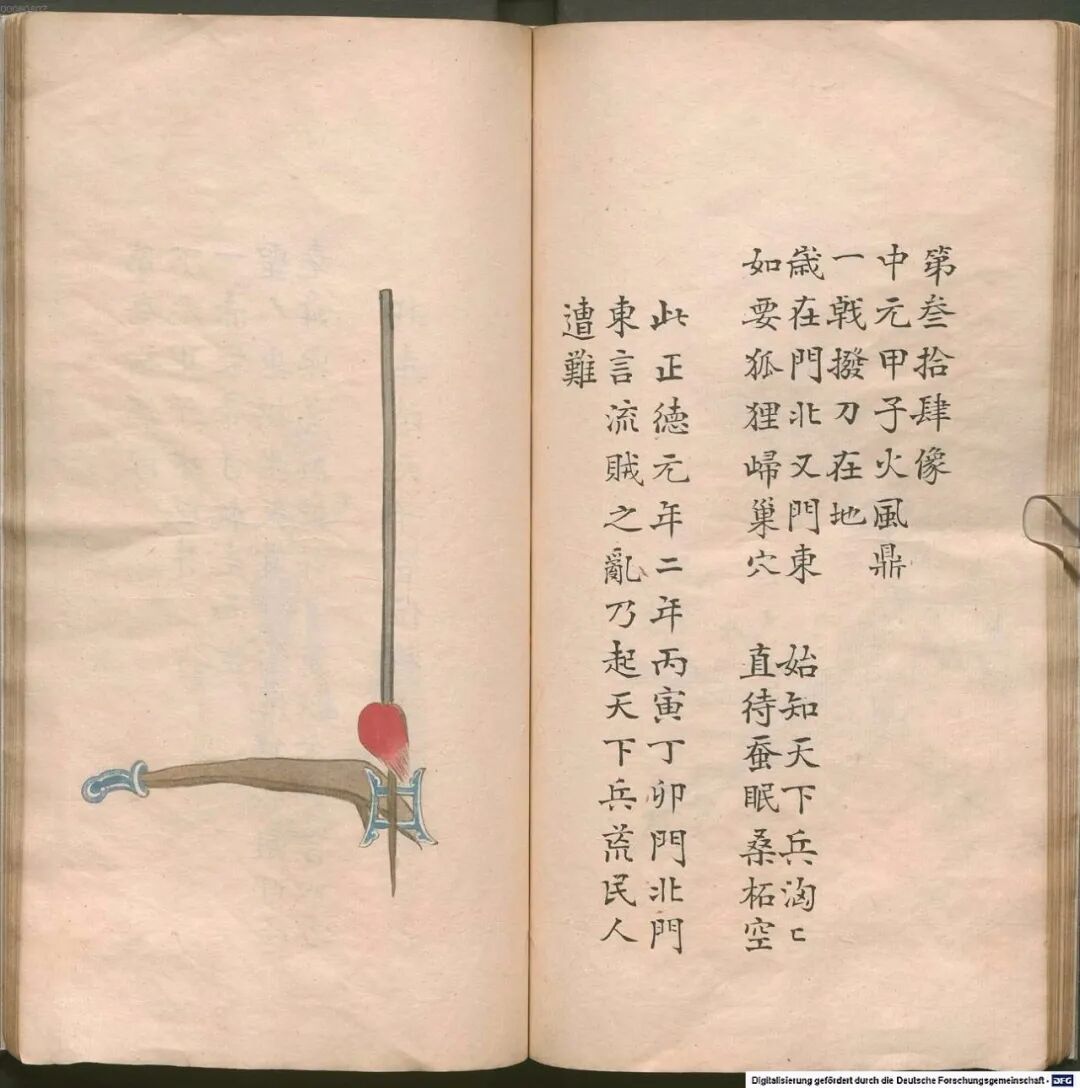 第叁拾肆像
中元甲子火風鼎
一戟撥刀在地
歲在門北又門東 始知天下兵洶匕
如要狐狸㷌巢穴 直待蚕眠桑柘空
此正德元年二年丙寅丁卯門北門
東言流賊之亂乃起天下兵荒民人
遭難
Digitalisierung gefördert durch die Deutsche Forschungsgemeinschaft - DFG